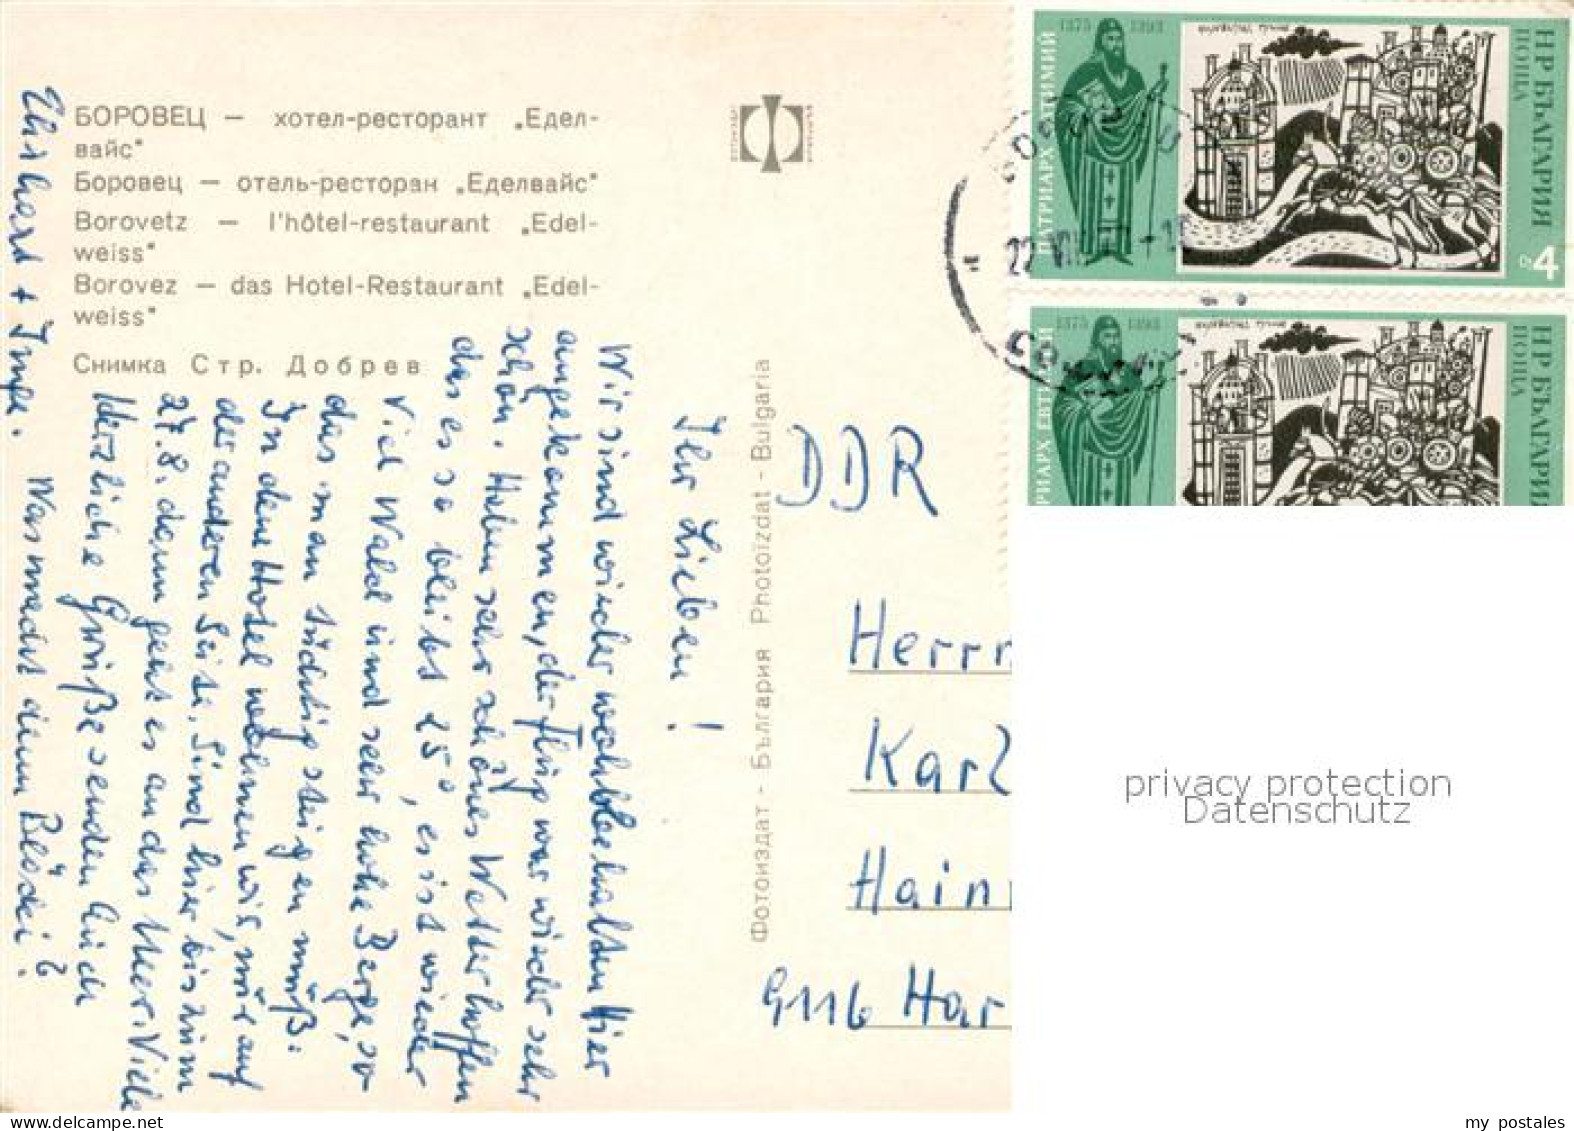 БОРОВЕЦ — хотел-ресторант „Едел-
вайс"
Боровец — отель-ресторан „Еделвайс"
Borovetz — l'hôtel-restaurant „Edel-
weiss"
Borovez — das Hotel-Restaurant „Edel-
weiss"
Снимка Стр. Добрев
Фотоиздат - България Photoizdat - Bulgaria
Ihr Lieben!
Wir sind wieder wohlbehalten hier
angekommen, der Flug war wieder sehr
schön. Haben sehr schönes Wetter hoffen
das es so bleibt 25°, es ist wieder
viel Wald und sehr hohe Berge, so
das man tüchtig steigen muß.
In dem Hotel wohnen wir, nur auf
der anderen Seite. Sind hier bis zum
27.8. dann geht es an das Meer. Viele
Herzliche Grüße senden Euch
Erhard + Inge. Was macht denn
DDR
Herrn
Karl
Hain
9116 Har
1375 1393
ПАТРИАРХ ЕВТИМИЙ
НР БЪЛГАРИЯ
ПОЩА
4
22 VII
1375 1393
РИАРХ ЕВТИМИЙ
НР БЪЛГАРИЯ
ПОЩА
privacy protection
Datenschutz
my postales